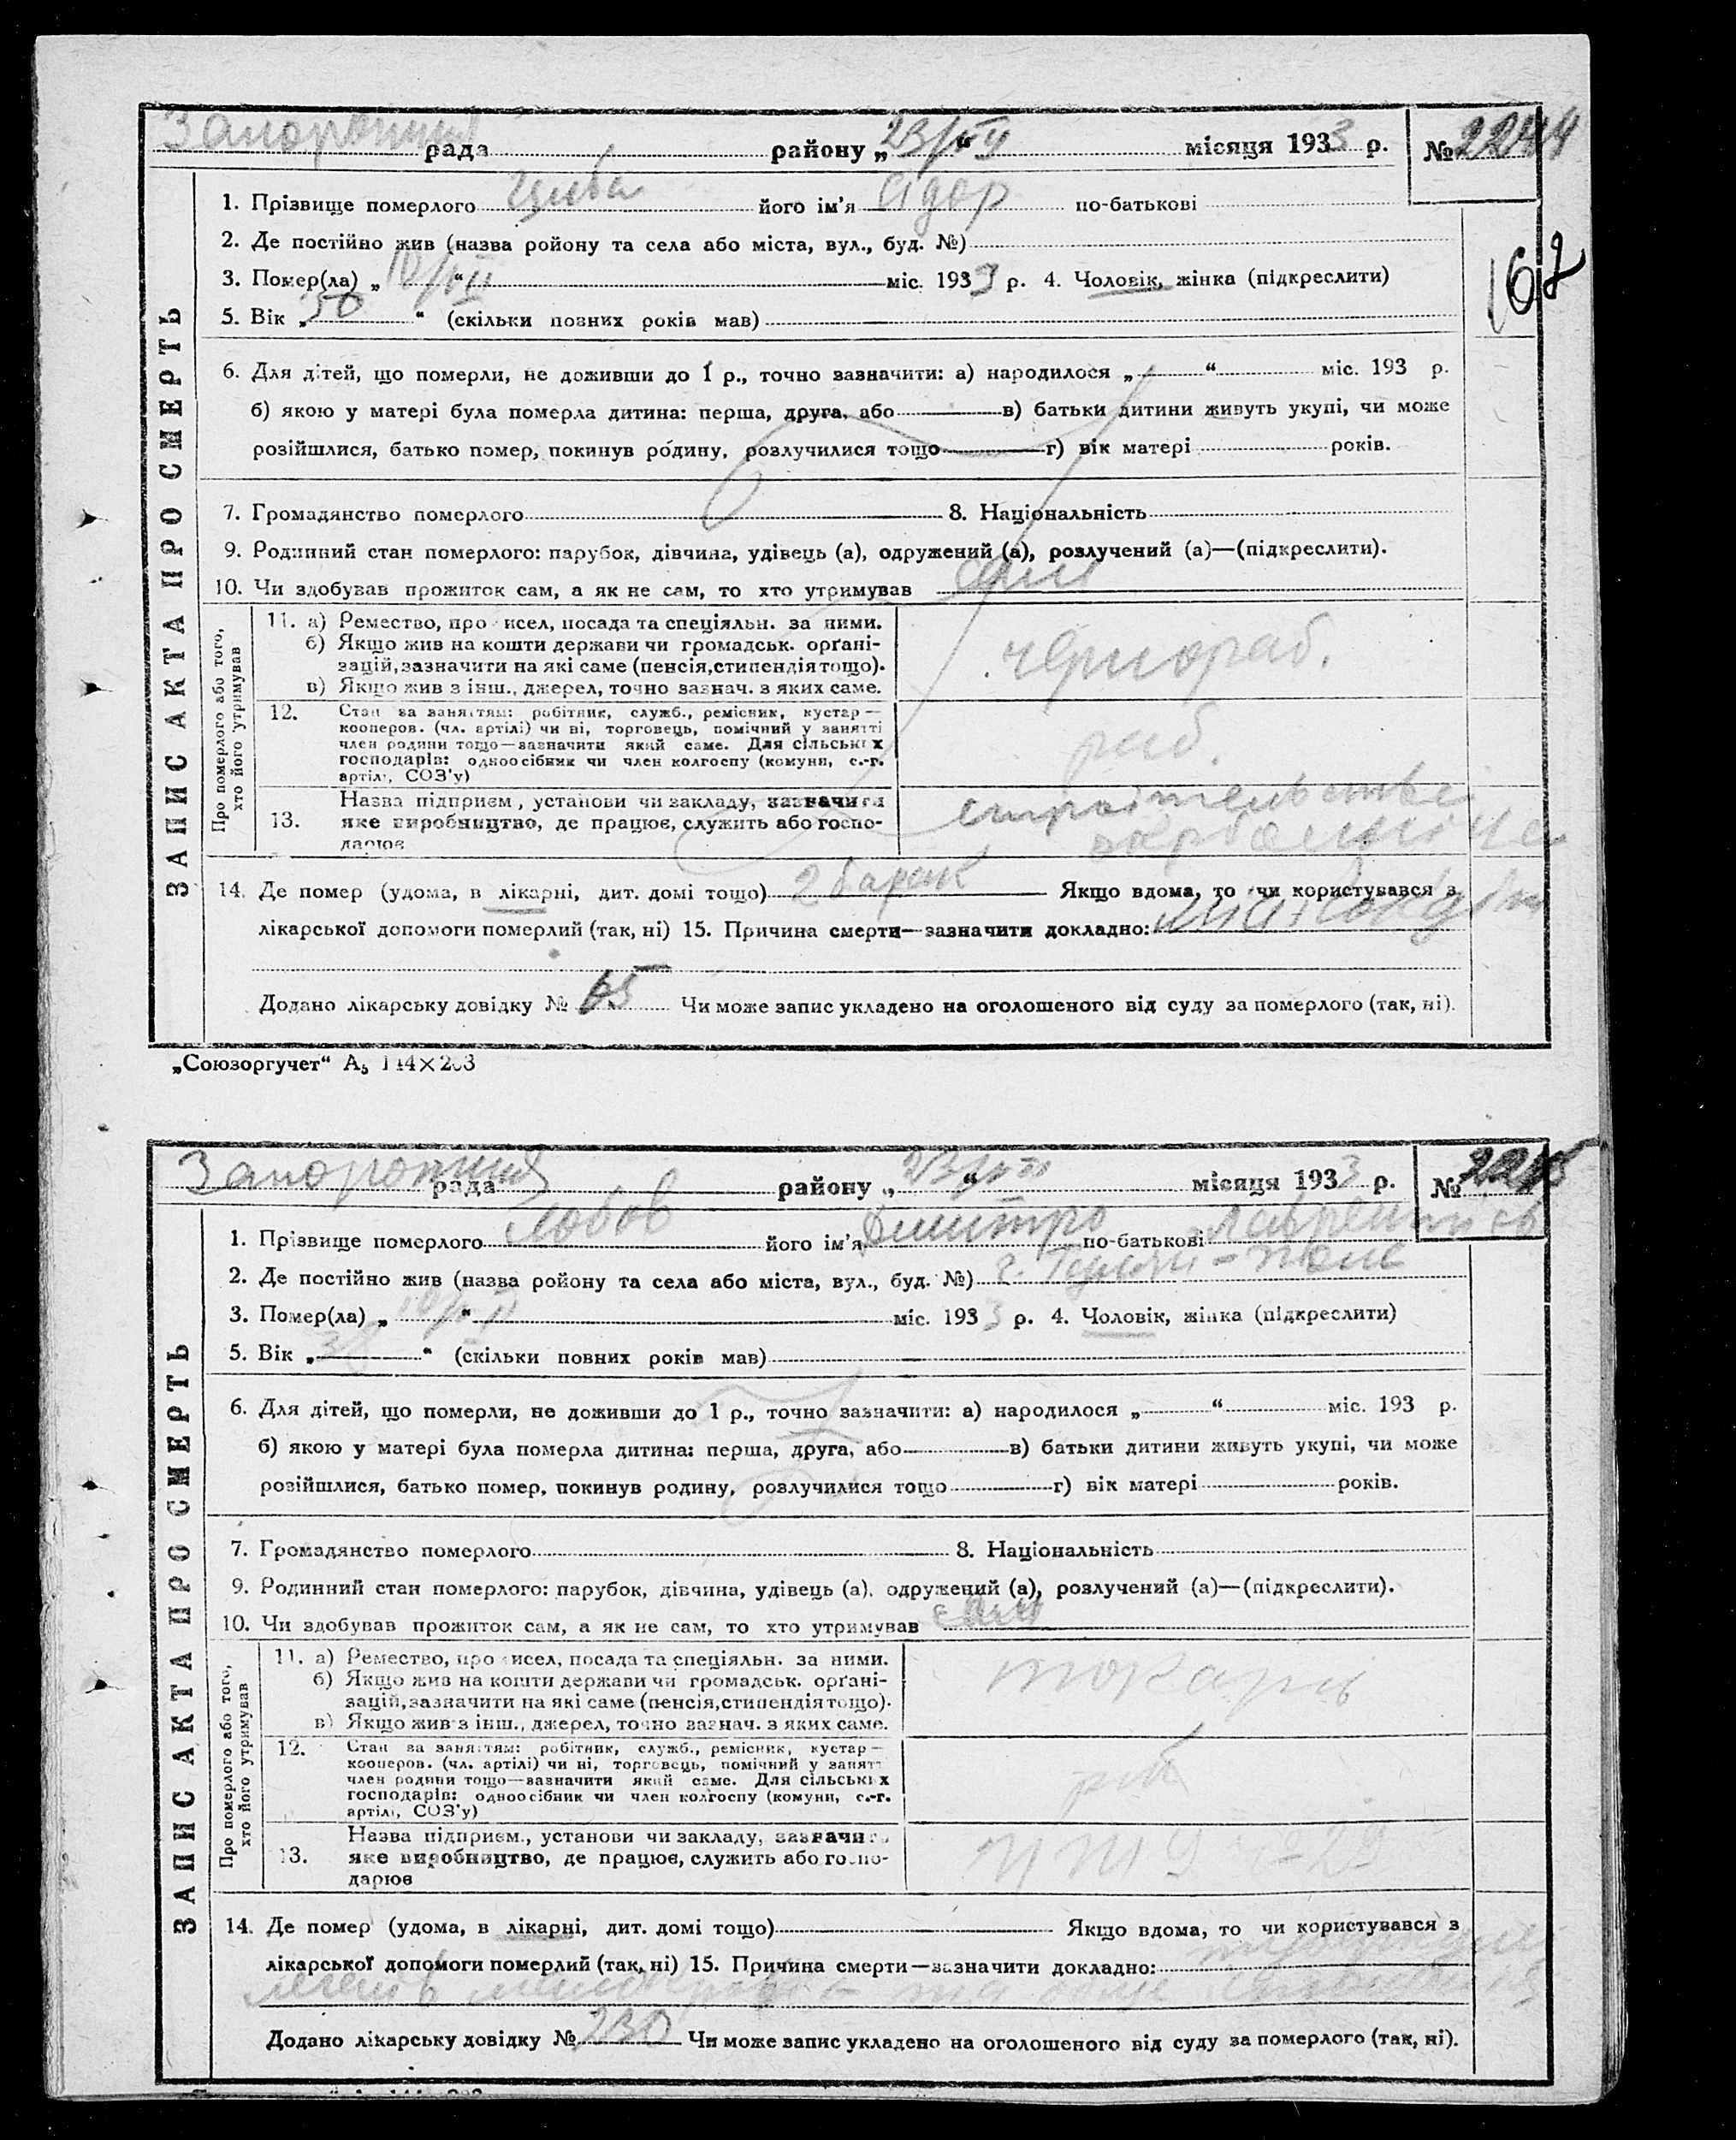 Запорожська рада району „23/VII“ місяця 1933 р. № 2244
1. Прізвище померлого Циба його ім'я Адор по-батькові
2. Де постійно жив (назва ройону та села або міста, вул., буд. №)
167
3. Помер(ла) „ “ міс. 1933 р. 4. Чоловік, жінка (підкреслити)
5. Вік „50“ (скільки повних років мав)
6. Для дітей, що померли, не доживши до 1 р., точно зазначити: а) народилося „ “ міс. 193 р.
б) якою у матері була померла дитина: перша, друга, або в) батьки дитини живуть укупі, чи може
розійшлися, батько помер, покинув родину, розлучилися тощо г) вік матері років.
7. Громадянство померлого 8. Національність
9. Родинний стан померлого: парубок, дівчина, удівець (а), одружений (а), розлучений (а)—(підкреслити).
10. Чи здобував прожиток сам, а як не сам, то хто утримував сам
ЗАПИС АКТА ПРО СМЕРТЬ
Про померлого або того, хто його утримував
11. а) Ремество, про исел, посада та спеціяльн. за ними.
б) Якщо жив на кошти держави чи громадськ. орґані-
зацій, зазначити на які саме (пенсія, стипендія тощо).
в) Якщо жив з інш., джерел, точно зазнач. з яких саме.
чернораб.
12. Стан за заняттям: робітник, служб., ремісник, кустар—
кооперов. (чл. артілі) чи ні, торговець, помічний у занятті
член родини тощо—зазначити який саме. Для сільських
господарів: одноосібник чи член колгоспу (комуни, с.-г.
артілі, СОЗ'у)
раб.
13. Назва підприєм., установи чи закладу, зазначити
яке виробництво, де працює, служить або госпо-
дарює
14. Де помер (удома, в лікарні, дит. домі тощо) 2 барак Якщо вдома, то чи користувався з
лікарської допомоги померлий (так, ні) 15. Причина смерти—зазначити докладно:
Додано лікарську довідку № 65 Чи може запис укладено на оголошеного від суду за померлого (так, ні).
„Союзоргучет“ А5 144×203
Запорожська рада району „23/VII“ місяця 1933 р. № 2245
1. Прізвище померлого Лобов його ім'я Дмитро по-батькові
2. Де постійно жив (назва ройону та села або міста, вул., буд. №) с. Гуляй-поле
3. Помер(ла) „ “ міс. 1933 р. 4. Чоловік, жінка (підкреслити)
5. Вік „38“ (скільки повних років мав)
6. Для дітей, що померли, не доживши до 1 р., точно зазначити: а) народилося „ “ міс. 193 р.
б) якою у матері була померла дитина: перша, друга, або в) батьки дитини живуть укупі, чи може
розійшлися, батько помер, покинув родину, розлучилися тощо г) вік матері років.
7. Громадянство померлого 8. Національність
9. Родинний стан померлого: парубок, дівчина, удівець (а), одружений (а), розлучений (а)—(підкреслити).
10. Чи здобував прожиток сам, а як не сам, то хто утримував сам
ЗАПИС АКТА ПРО СМЕРТЬ
Про померлого або того, хто його утримував
11. а) Ремество, про исел, посада та спеціяльн. за ними.
б) Якщо жив на кошти держави чи громадськ. орґані-
зацій, зазначити на які саме (пенсія, стипендія тощо).
в) Якщо жив з інш., джерел, точно зазнач. з яких саме.
токарь
12. Стан за заняттям: робітник, служб., ремісник, кустар—
кооперов. (чл. артілі) чи ні, торговець, помічний у занятт
член родини тощо—зазначити який саме. Для сільських
господарів: одноосібник чи член колгоспу (комуни, с.-г.
артілі, СОЗ'у)
раб
13. Назва підприєм., установи чи закладу, зазначити
яке виробництво, де працює, служить або госпо-
дарює
14. Де помер (удома, в лікарні, дит. домі тощо) Якщо вдома, то чи користувався з
лікарської допомоги померлий (так, ні) 15. Причина смерти—зазначити докладно:
Додано лікарську довідку № 230 Чи може запис укладено на оголошеного від суду за померлого (так, ні).